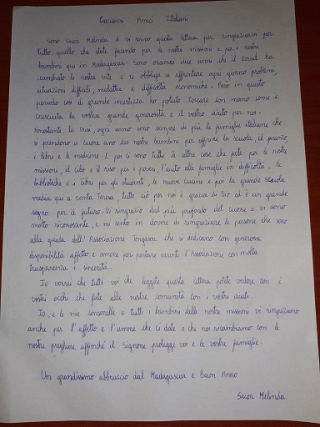 Carissimi Amici Italiani
Sono Suor Melinda e vi scrivo questa lettera per ringraziarvi per
tutto quello che state facendo per le nostre missioni e per i nostri
bambini qui in Madagascar. Sono oramai due anni che il covid ha
cambiato le nostre vite e ci obbliga a affrontare ogni giorno problemi,
situazioni difficili, malattie e difficoltà economiche. Però in questo
periodo così di grande incertezza ho potuto toccare con mano come è
cresciuta la vostra grande generosità e il vostro aiuto per noi.
Nonostante la crisi, ogni anno sono sempre di più le famiglie italiane che
si prendono a cuore uno dei nostri bambini per offrirgli la scuola, il pranzo,
i libri e le medicine. E poi ci sono tutte le altre cose che fate per le nostre
missioni, il cibo e il riso per i poveri, l'aiuto alle famiglie in difficoltà, le
biblioteche e i libri per gli studenti, le nuove cucine e poi la grande scuola
media qui a Santa Teresa, tutto ciò per noi è grazia di Dio ed è un grande
segno per il futuro. Vi ringrazio dal più profondo del cuore e vi sono
molto riconoscente, e mi sento in dovere di ringraziare le persone che sono
alla guida dell'Associazione Tongasoa che si dedicano con generosa
disponibilità affetto e amore per portare avanti l'Associazione con molta
trasparenza e sincerità.
Io vorrei che tutti voi che leggete questa lettera potete vedere con i
vostri occhi che fate alle nostre comunità con i vostri aiuti.
Io, e le mie consorelle e tutti i bambini delle nostre missioni vi ringraziamo
anche per l'affetto e l'amore che ci date e che noi ricambiamo con le
nostre preghiere affinché il Signore protegga voi e le vostre famiglie.
Un grandissimo abbraccio dal Madagascar e Buon Anno
Suor Melinda